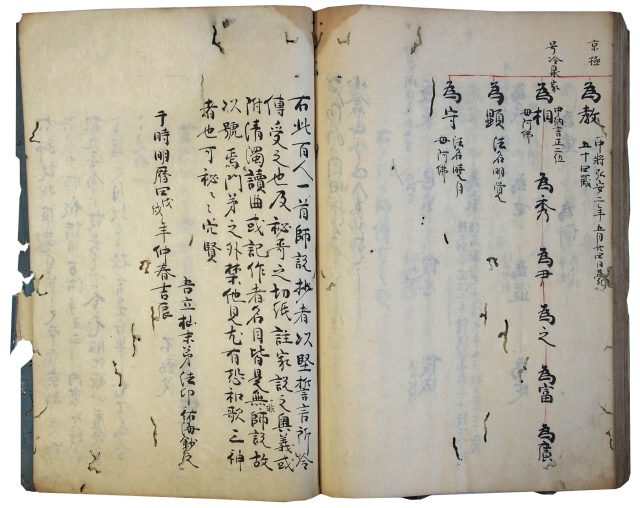 京極
為教 中将弘安二年五月廿四日薨
五十四歳
号冷泉家
為相 中納言正二位
母阿佛
為秀 為尹 為之 為富 為廣
為顕 法名明覚
為守 法名暁月
母阿佛
右此百人一首師説抄者以堅誓言所令
傳受之也及祕哥之切紙註家説之奥義或
附清濁讀曲或記作者名目皆是無非師説故
以號焉門弟之外禁他見尤有恐和歌三神
者也可祕々穴賢
于時明暦四戊戌年仲春吉辰
末弟法印祐海